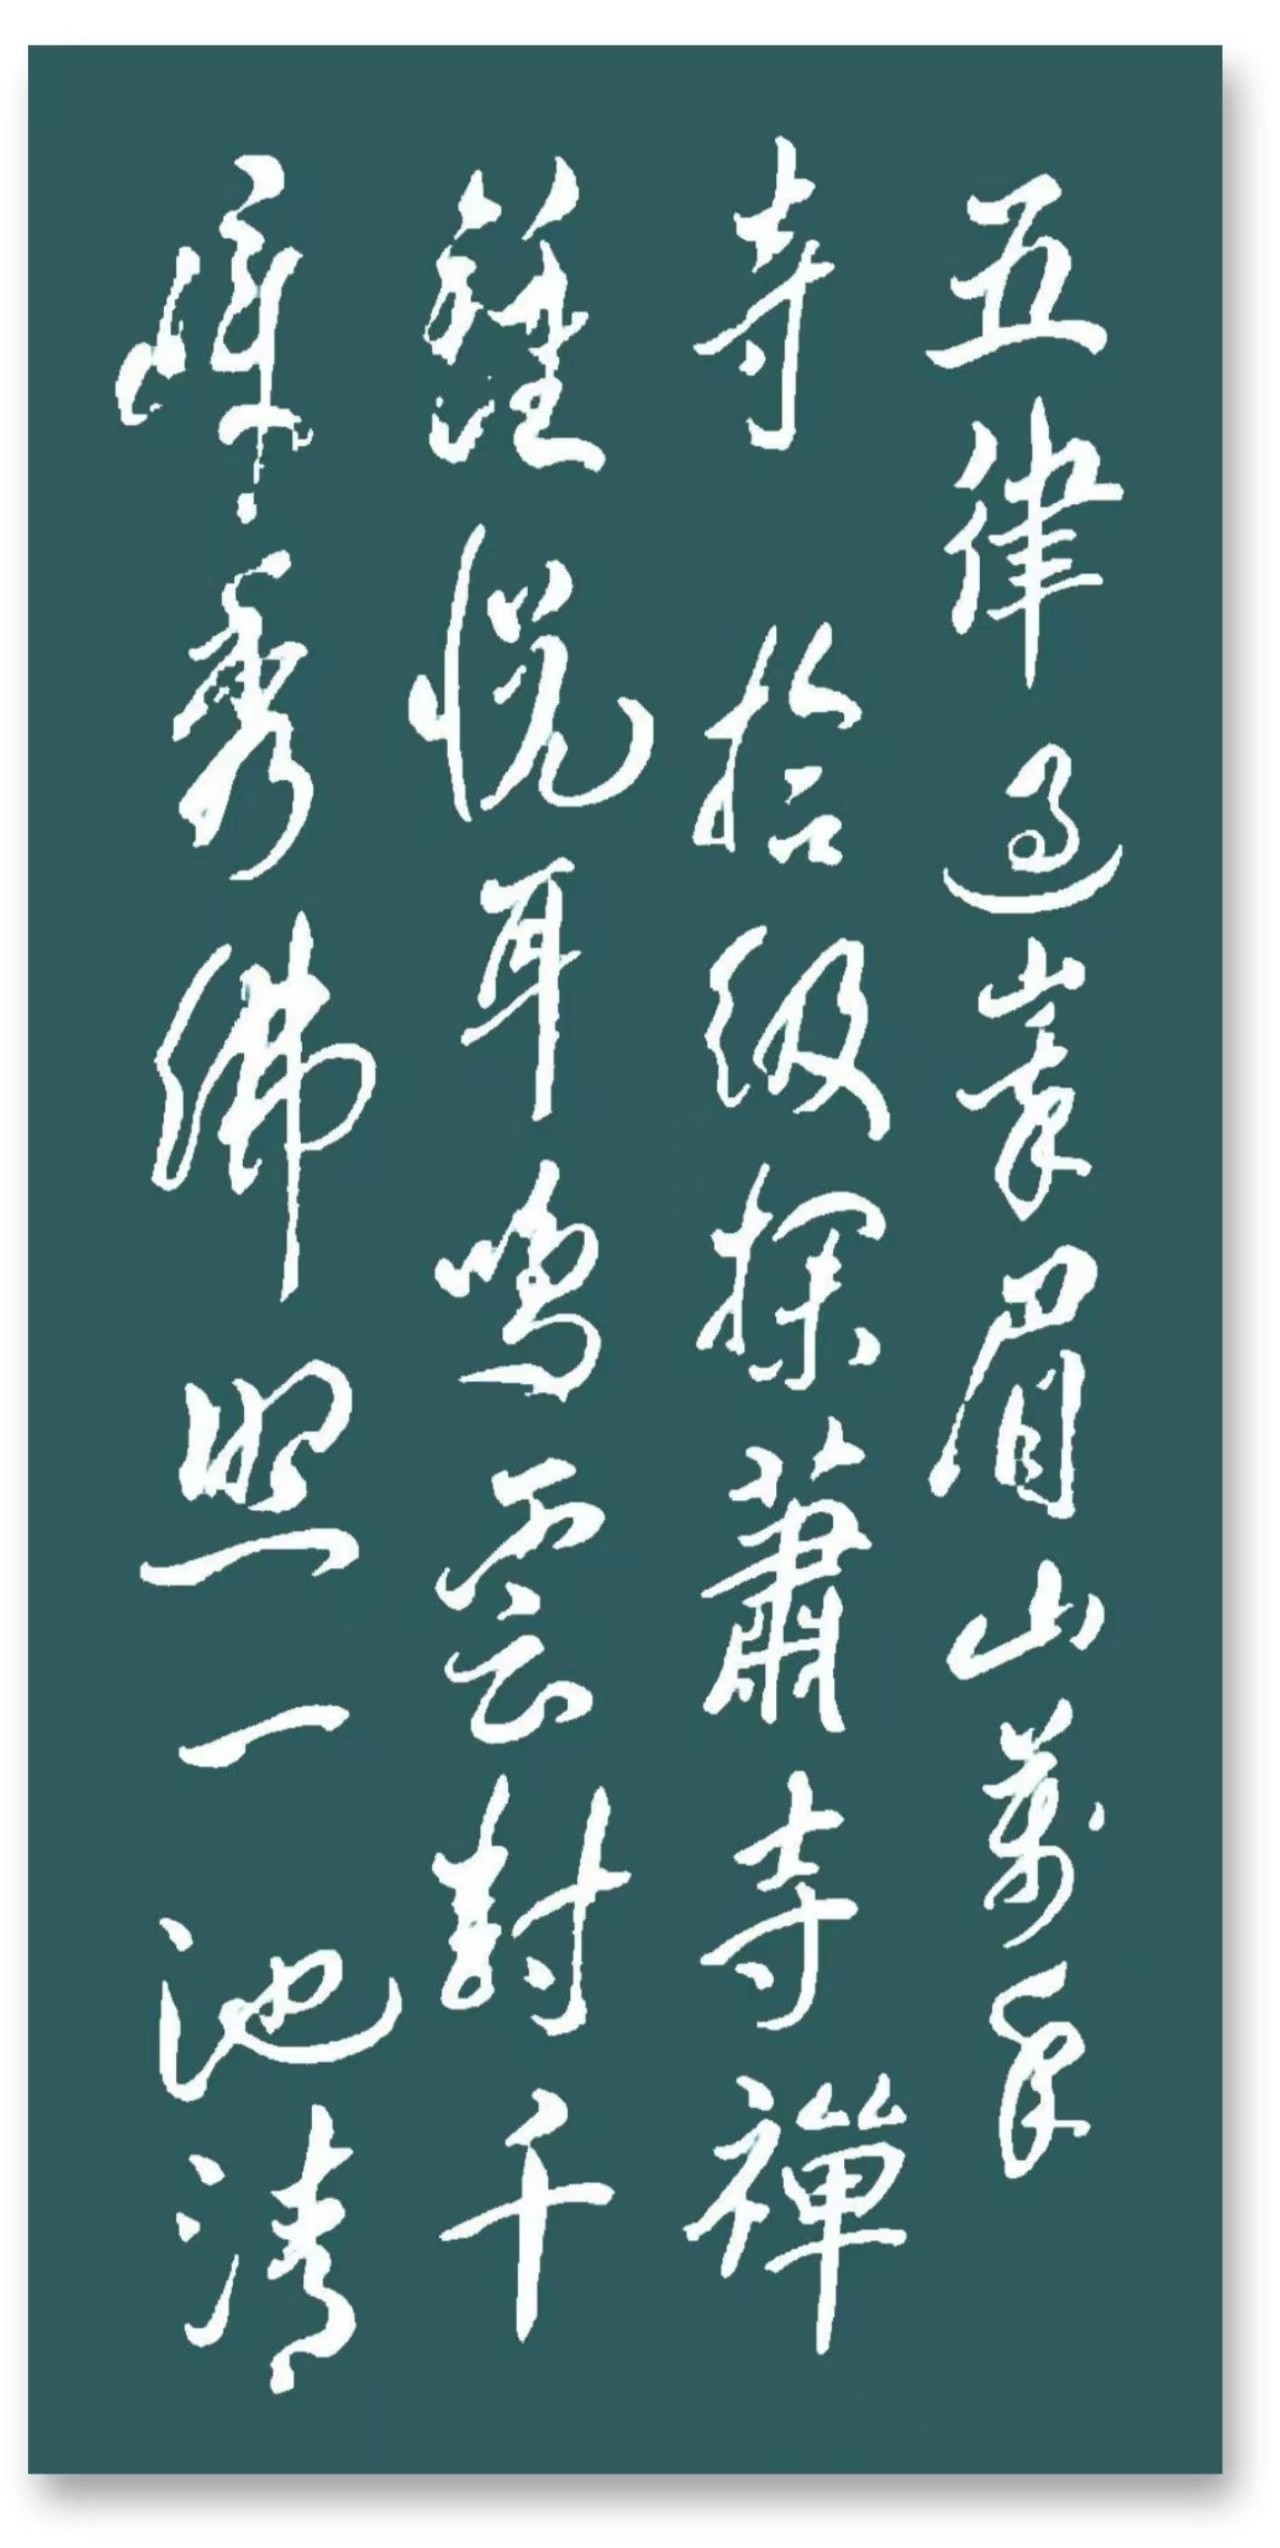 五律過峩眉山萬年
寺 拾級探蕭寺禪
鐘悅耳鳴雲對千
嶂秀佛照一池清